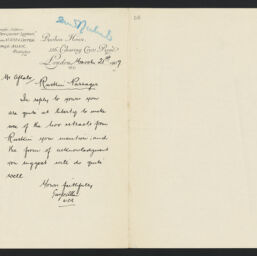 Ruskin House,
156, Charing Cross Road,
London, March 21st 1917
Mr Aflalo,
Ruskin Passages
In reply to yours you
are quite at liberty to make
use of the two extracts from
Ruskin you mention, and
the form of acknowledgment
you suggest will do quite
well
Yours faithfully